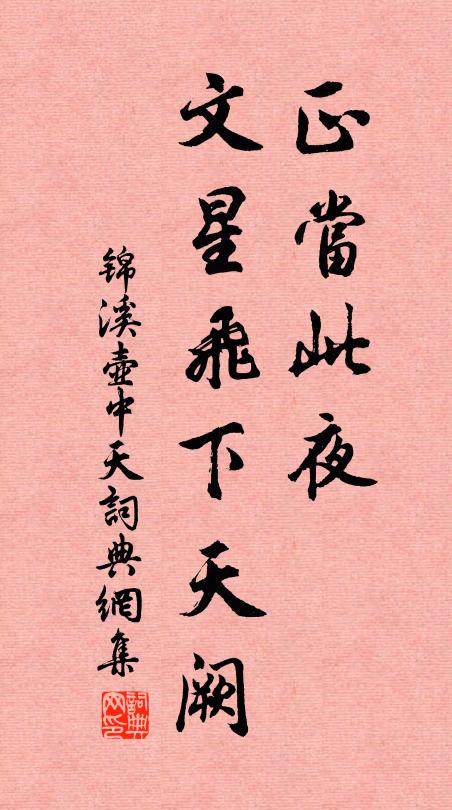 正當此夜
文星飛下天闕
錦溪壺中天詞典網集
詞典
网印